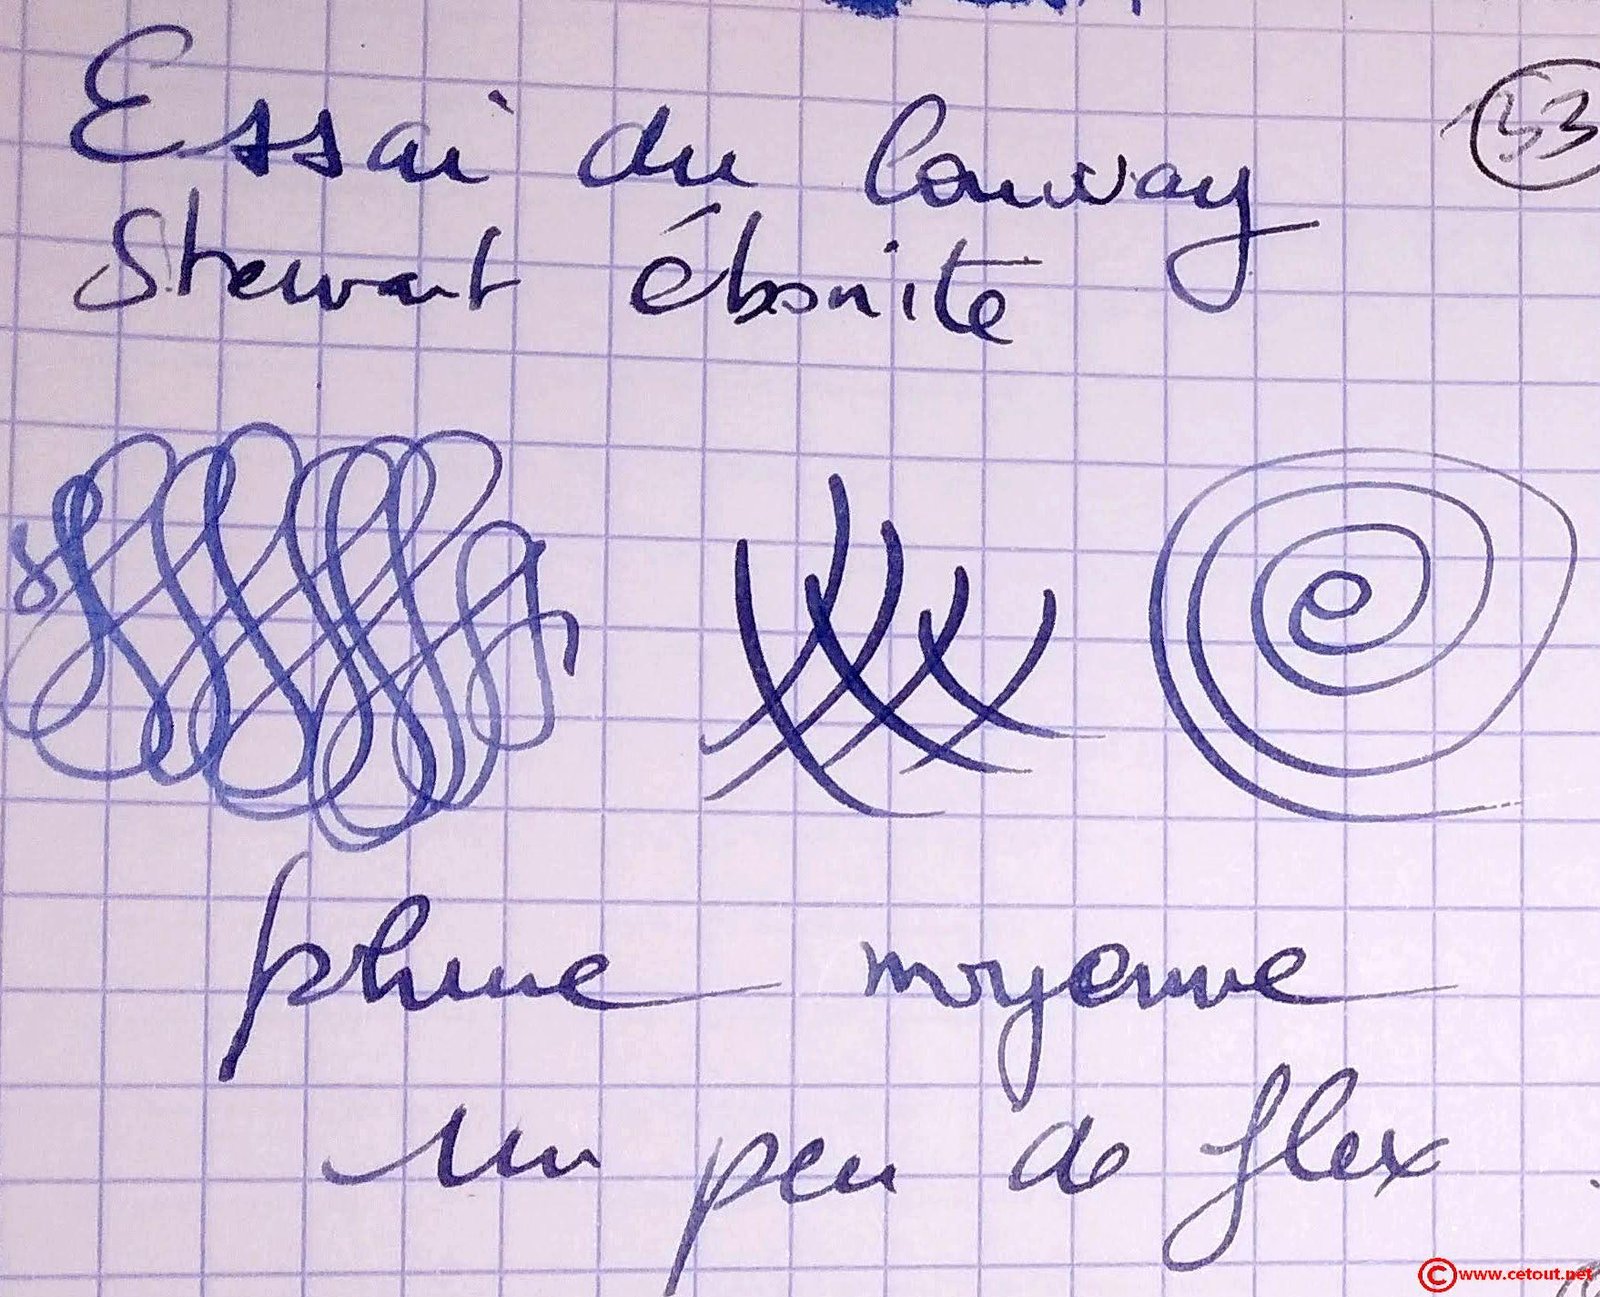 Essai du Conway
133
Stewart ébonite
plume moyenne
un peu de flex
©www.cetout.net